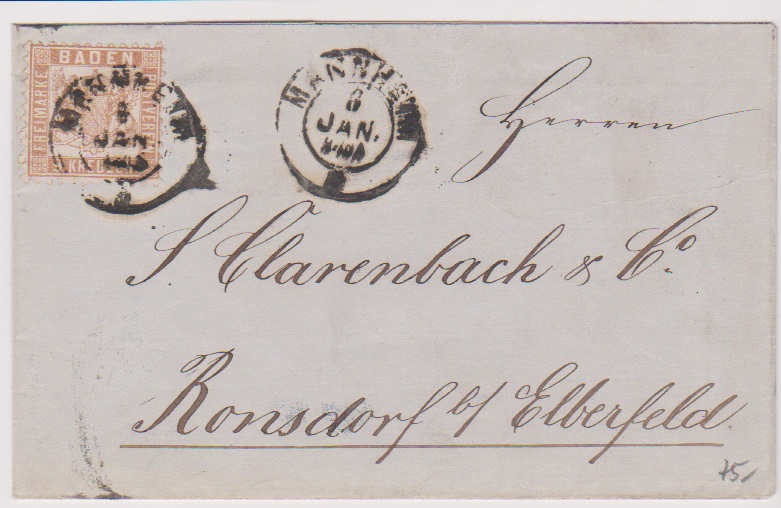 BADEN
FREIMARKE
MANNHEIM
8
JAN.
MANNHEIM
8
JAN.
Herren
S. Clarenbach & Co.
Ronsdorf b/ Elberfeld.
75.